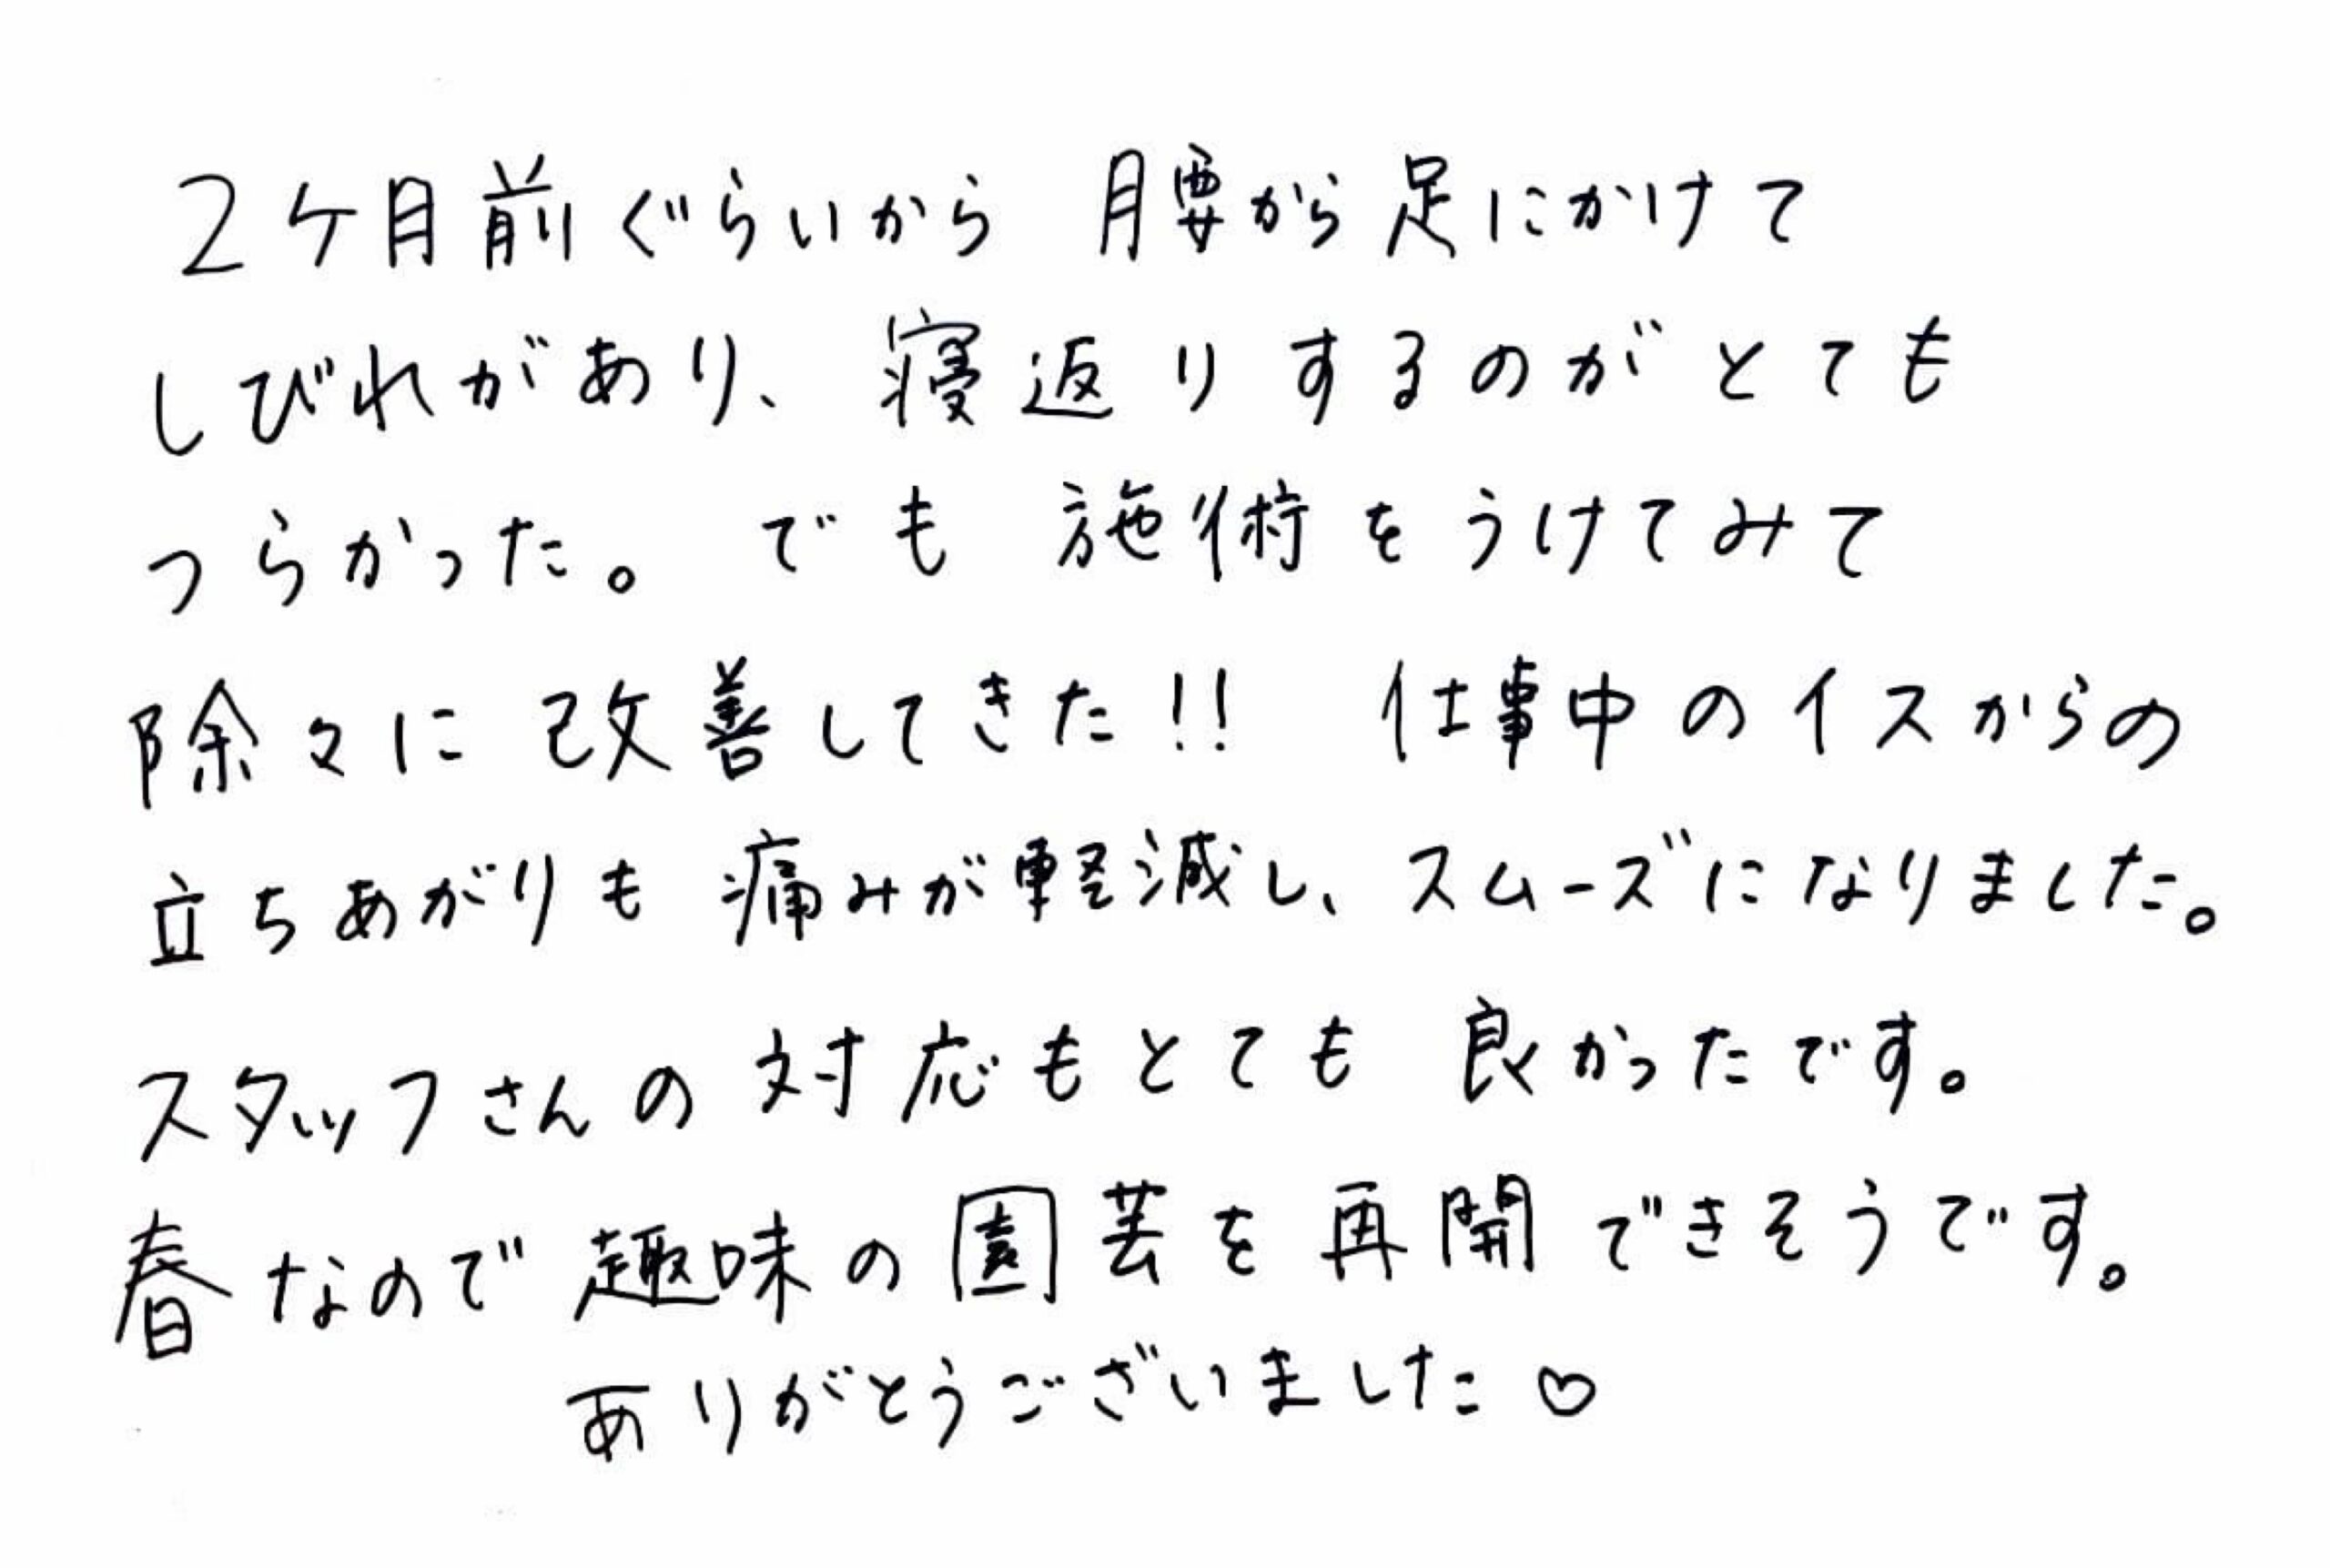 2ケ月前ぐらいから 腰から足にかけて
しびれがあり、寝返りするのがとても
つらかった。でも 施術をうけてみて
除々に 改善してきた!! 仕事中のイスからの
立ちあがりも 痛みが軽減し、スムーズになりました。
スタッフさんの対応もとても 良かったです。
春なので趣味の園芸を再開できそうです。
ありがとうございました♡